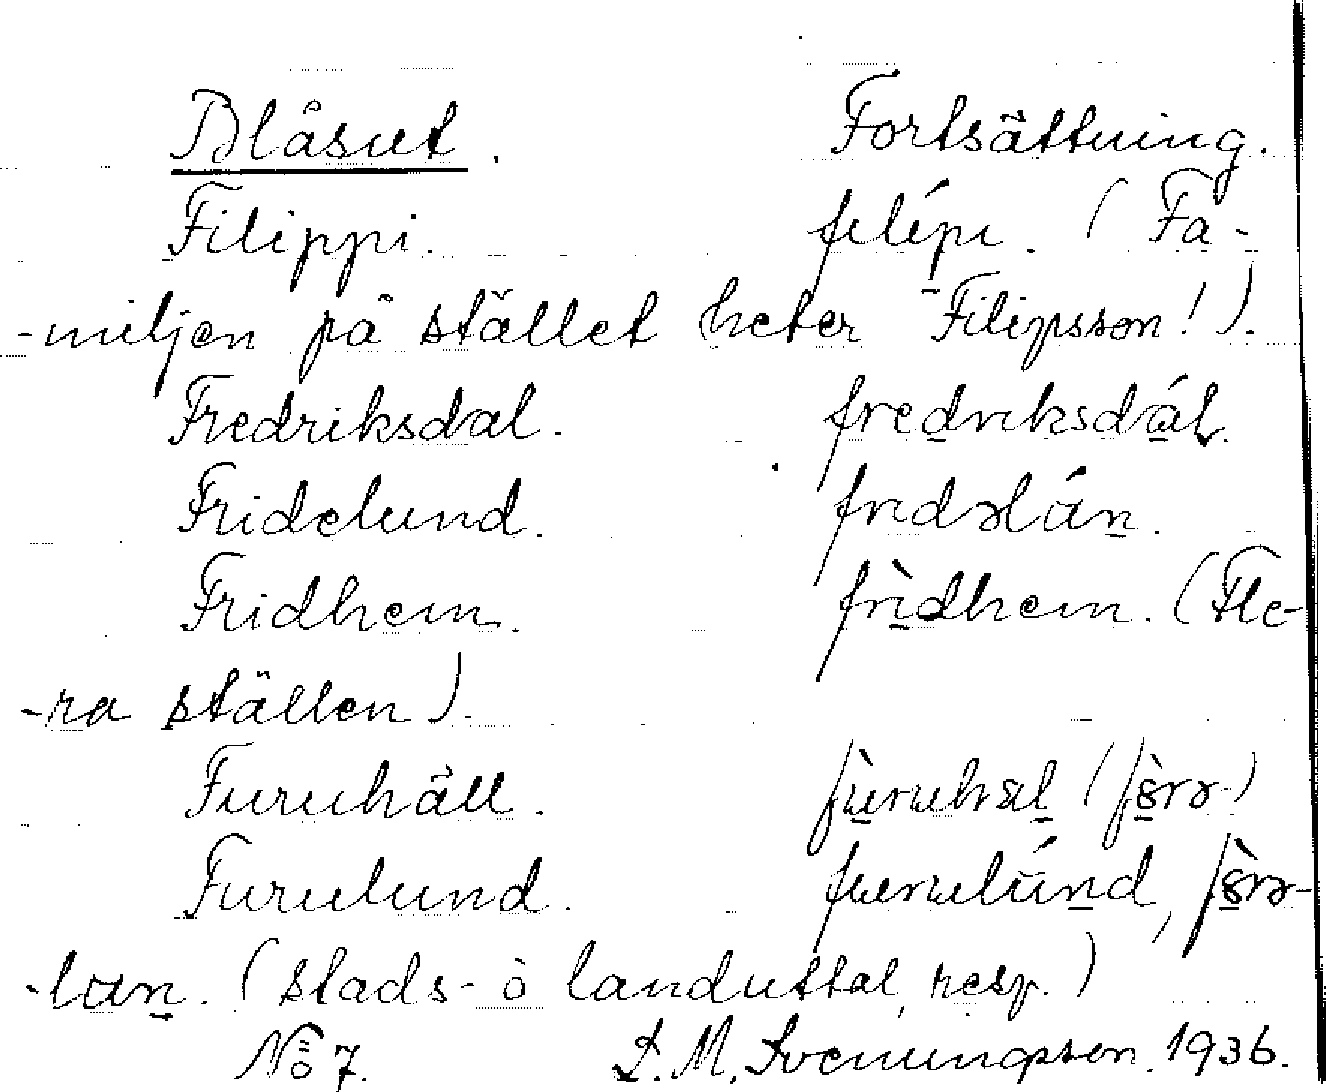 Blåsut. Fortsättning.
Filippi. filípi. (Fa-
-miljen på stället heter Filipsson!).
Fredriksdal. fredriksdál.
Fridelund. fridəlún.
Fridhem. frìdhem. (Fle-
-ra ställen).
Furuhäll. fùruhäl (fòrə-)
Furulund. furulúnd, fòrə-
-lun. (stads- o landuttal, resp.)
No 7. D. M. Svenungsson. 1936.